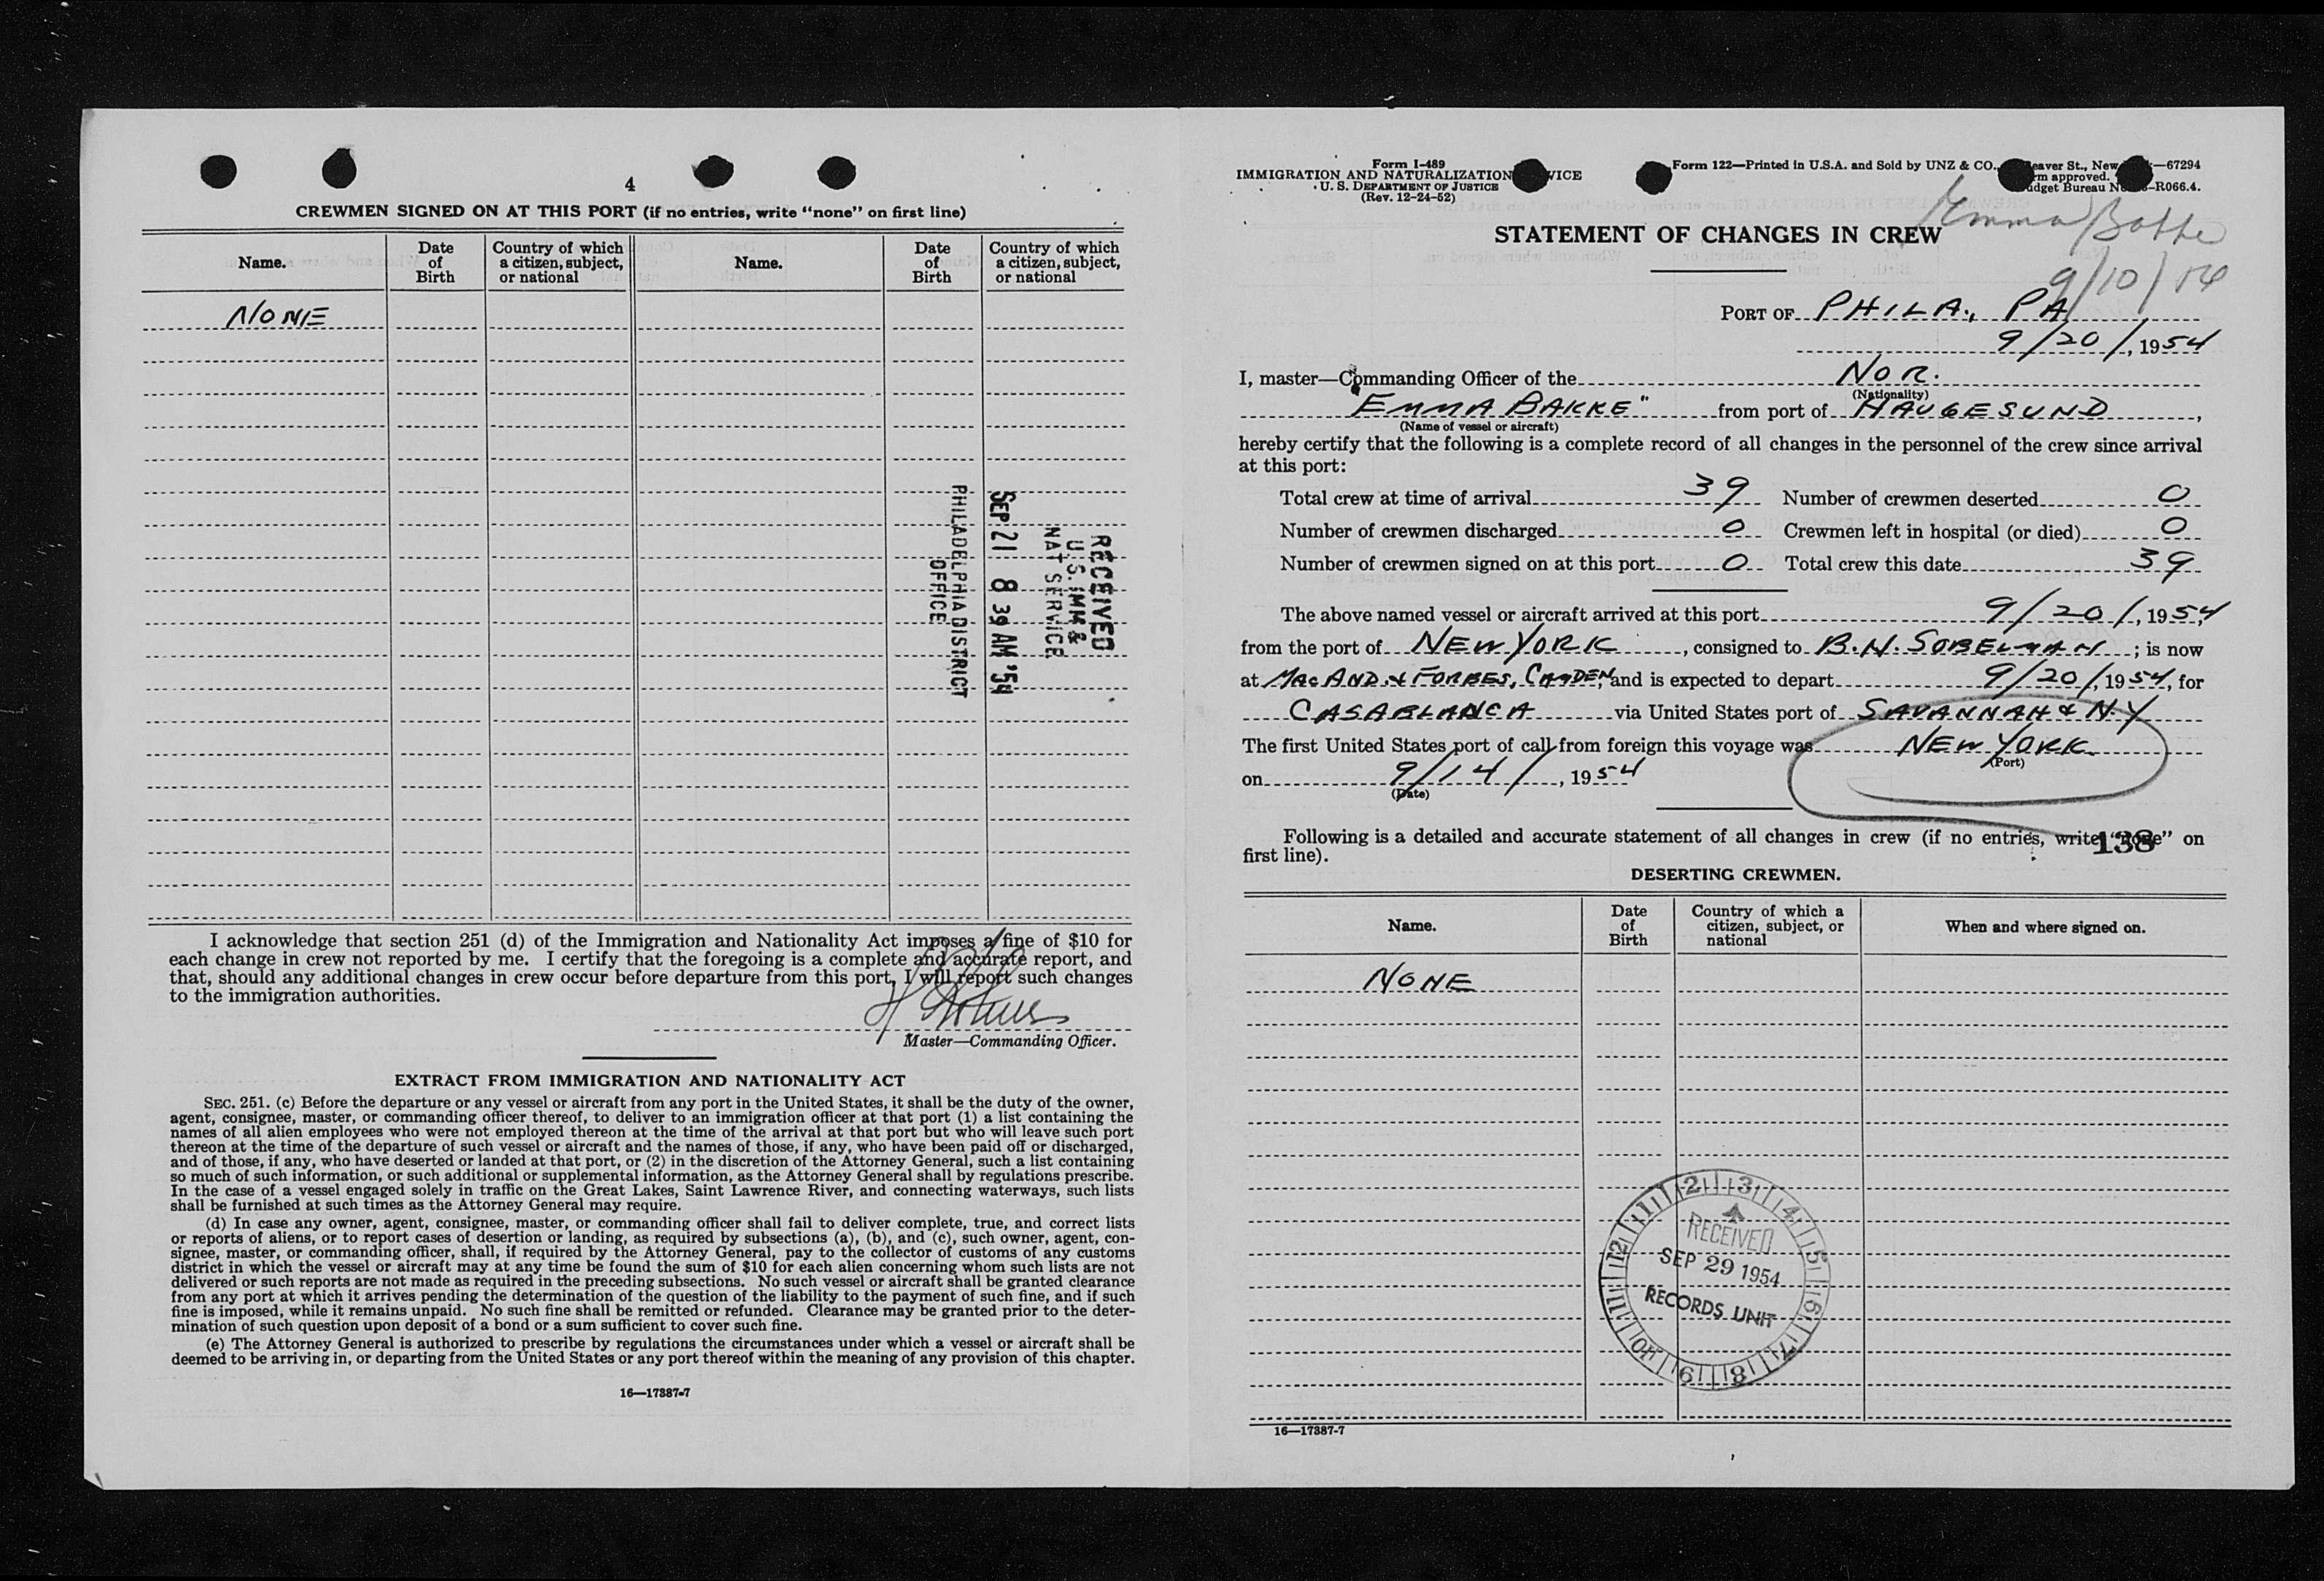 4
CREWMEN SIGNED ON AT THIS PORT (if no entries, write “none” on first line)
Name.
Date of Birth
Country of which a citizen, subject, or national
Name.
Date of Birth
Country of which a citizen, subject, or national
NONE
RECEIVED
U.S. IMM &
NAT SERVICE
SEP 21 8 39 AM '54
PHILADELPHIA DISTRICT
OFFICE
I acknowledge that section 251 (d) of the Immigration and Nationality Act imposes a fine of $10 for
each change in crew not reported by me. I certify that the foregoing is a complete and accurate report, and
that, should any additional changes in crew occur before departure from this port, I will report such changes
to the immigration authorities.
Master—Commanding Officer.
EXTRACT FROM IMMIGRATION AND NATIONALITY ACT
SEC. 251. (c) Before the departure or any vessel or aircraft from any port in the United States, it shall be the duty of the owner,
agent, consignee, master, or commanding officer thereof, to deliver to an immigration officer at that port (1) a list containing the
names of all alien employees who were not employed thereon at the time of the arrival at that port but who will leave such port
thereon at the time of the departure of such vessel or aircraft and the names of those, if any, who have been paid off or discharged,
and of those, if any, who have deserted or landed at that port, or (2) in the discretion of the Attorney General, such a list containing
so much of such information, or such additional or supplemental information, as the Attorney General shall by regulations prescribe.
In the case of a vessel engaged solely in traffic on the Great Lakes, Saint Lawrence River, and connecting waterways, such lists
shall be furnished at such times as the Attorney General may require.
(d) In case any owner, agent, consignee, master, or commanding officer shall fail to deliver complete, true, and correct lists
or reports of aliens, or to report cases of desertion or landing, as required by subsections (a), (b), and (c), such owner, agent, con-
signee, master, or commanding officer, shall, if required by the Attorney General, pay to the collector of customs of any customs
district in which the vessel or aircraft may at any time be found the sum of $10 for each alien concerning whom such lists are not
delivered or such reports are not made as required in the preceding subsections. No such vessel or aircraft shall be granted clearance
from any port at which it arrives pending the determination of the question of the liability to the payment of such fine, and if such
fine is imposed, while it remains unpaid. No such fine shall be remitted or refunded. Clearance may be granted prior to the deter-
mination of such question upon deposit of a bond or a sum sufficient to cover such fine.
(e) The Attorney General is authorized to prescribe by regulations the circumstances under which a vessel or aircraft shall be
deemed to be arriving in, or departing from the United States or any port thereof within the meaning of any provision of this chapter.
16—17387-7
Form I-489
IMMIGRATION AND NATURALIZATION VICE
U. S. DEPARTMENT OF JUSTICE
(Rev. 12-24-52)
Form 122—Printed in U.S.A. and Sold by UNZ & CO., eaver St., New —67294
m approved.
udget Bureau N –R066.4.
Emma
9/10/54
STATEMENT OF CHANGES IN CREW
PORT OF PHILA., PA
9/20/, 1954
I, master—Commanding Officer of the NOR.
(Nationality)
"EMMA BAKKE" from port of HAUGESUND,
(Name of vessel or aircraft)
hereby certify that the following is a complete record of all changes in the personnel of the crew since arrival
at this port:
Total crew at time of arrival 39 Number of crewmen deserted 0
Number of crewmen discharged 0 Crewmen left in hospital (or died) 0
Number of crewmen signed on at this port 0 Total crew this date 39
The above named vessel or aircraft arrived at this port 9/20/, 1954,
from the port of NEW YORK, consigned to B.H. SOBELMAN; is now
at MAC AND. & FORBES, CAMDEN, and is expected to depart 9/20/, 1954, for
CASABLANCA via United States port of SAVANNAH & N.Y
The first United States port of call from foreign this voyage was NEW YORK
(Port)
on 9/14/, 1954
(Date)
Following is a detailed and accurate statement of all changes in crew (if no entries, write “none” on
first line).
138
DESERTING CREWMEN.
Name.
Date of Birth
Country of which a citizen, subject, or national
When and where signed on.
NONE
1 2 3 4 5 6 7 8 9 10 11 12
RECEIVED
SEP 29 1954
RECORDS UNIT
16—17387-7